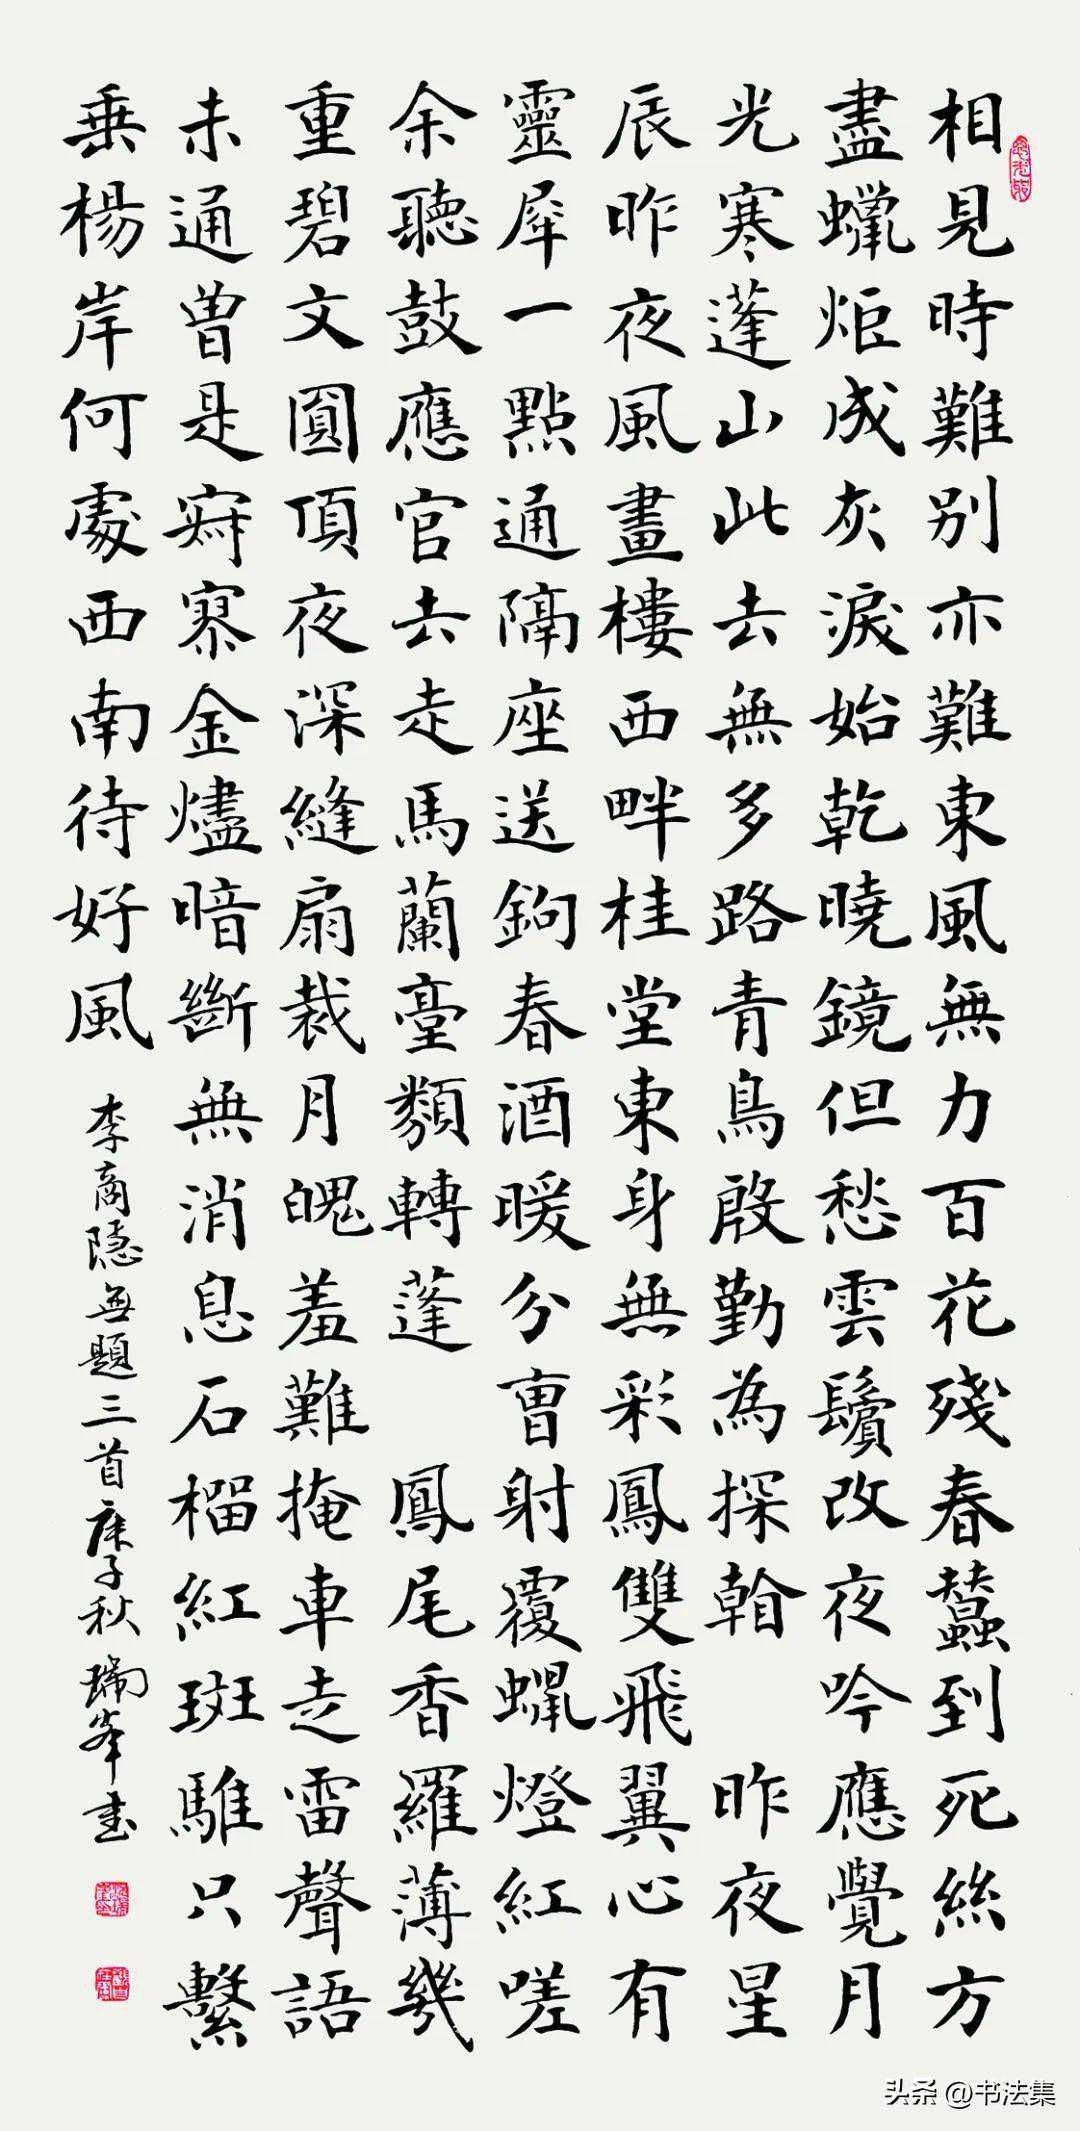 相見時難別亦難東風無力百花殘春蠶到死絲方
盡蠟炬成灰淚始乾曉鏡但愁雲鬢改夜吟應覺月
光寒蓬山此去無多路青鳥殷勤為探看 昨夜星
辰昨夜風畫樓西畔桂堂東身無彩鳳雙飛翼心有
靈犀一點通隔座送鉤春酒暖分曹射覆蠟燈紅嗟
余聽鼓應官去走馬蘭臺類轉蓬 鳳尾香羅薄幾
重碧文圓頂夜深縫扇裁月魄羞難掩車走雷聲語
未通曾是寂寥金燼暗斷無消息石榴紅斑騅只繫
垂楊岸何處西南待好風
李商隱無題三首庚子秋瑞峯書
头条 @书法集